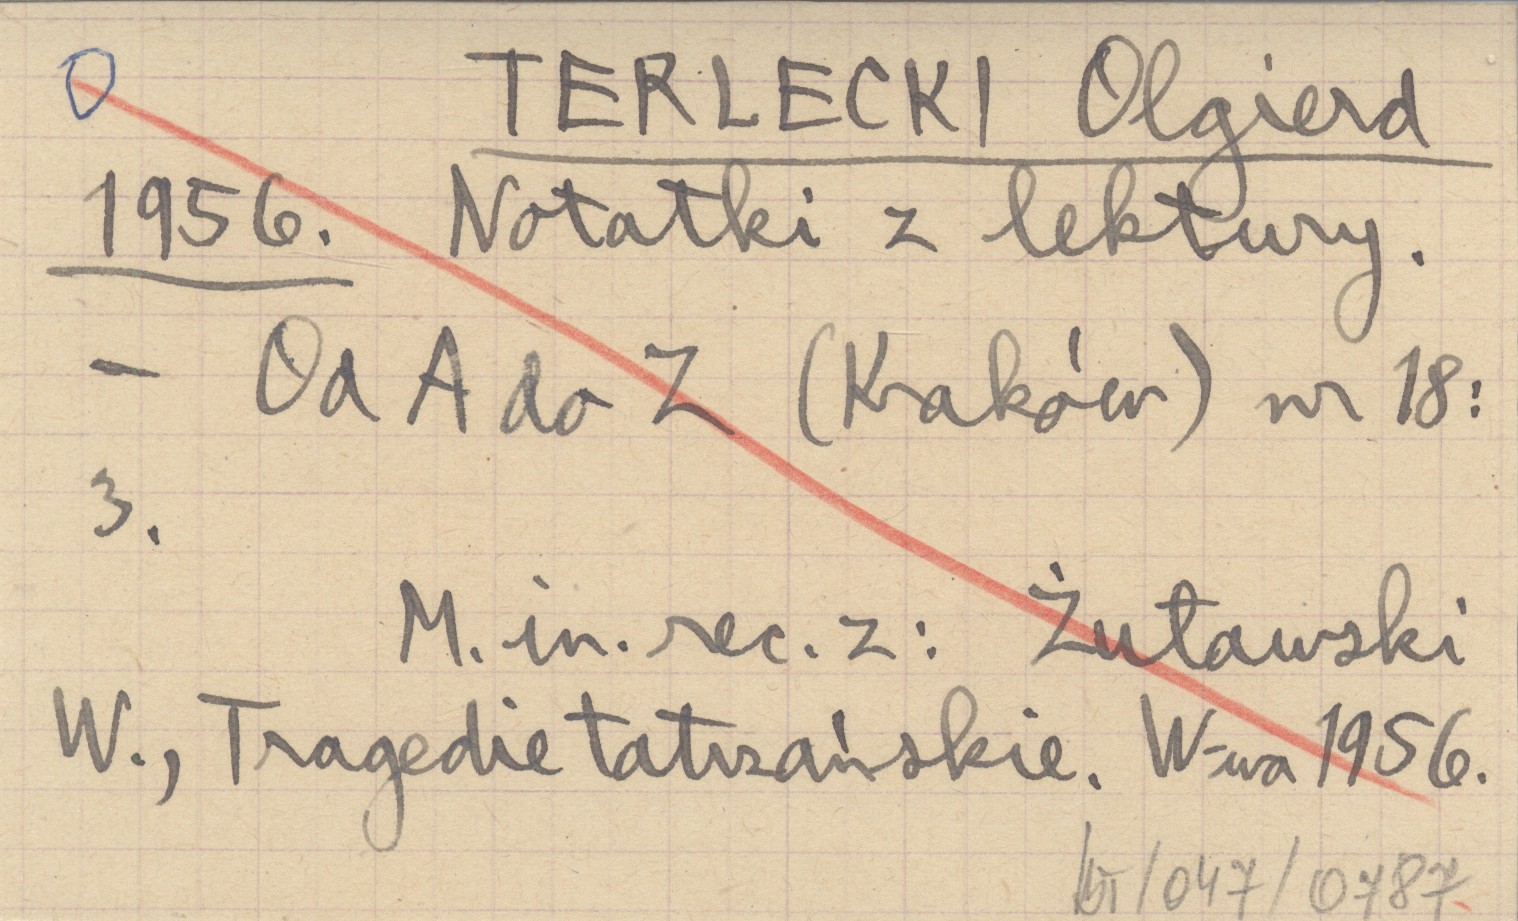 O TERLECKI Olgierd
1956. Notatki z lektury.
- Od A do Z (Kraków) nr 18:
3.
M. in. rec. z: Żuławski
W., Tragedie tatrzańskie. W-wa 1956.
/047/0787